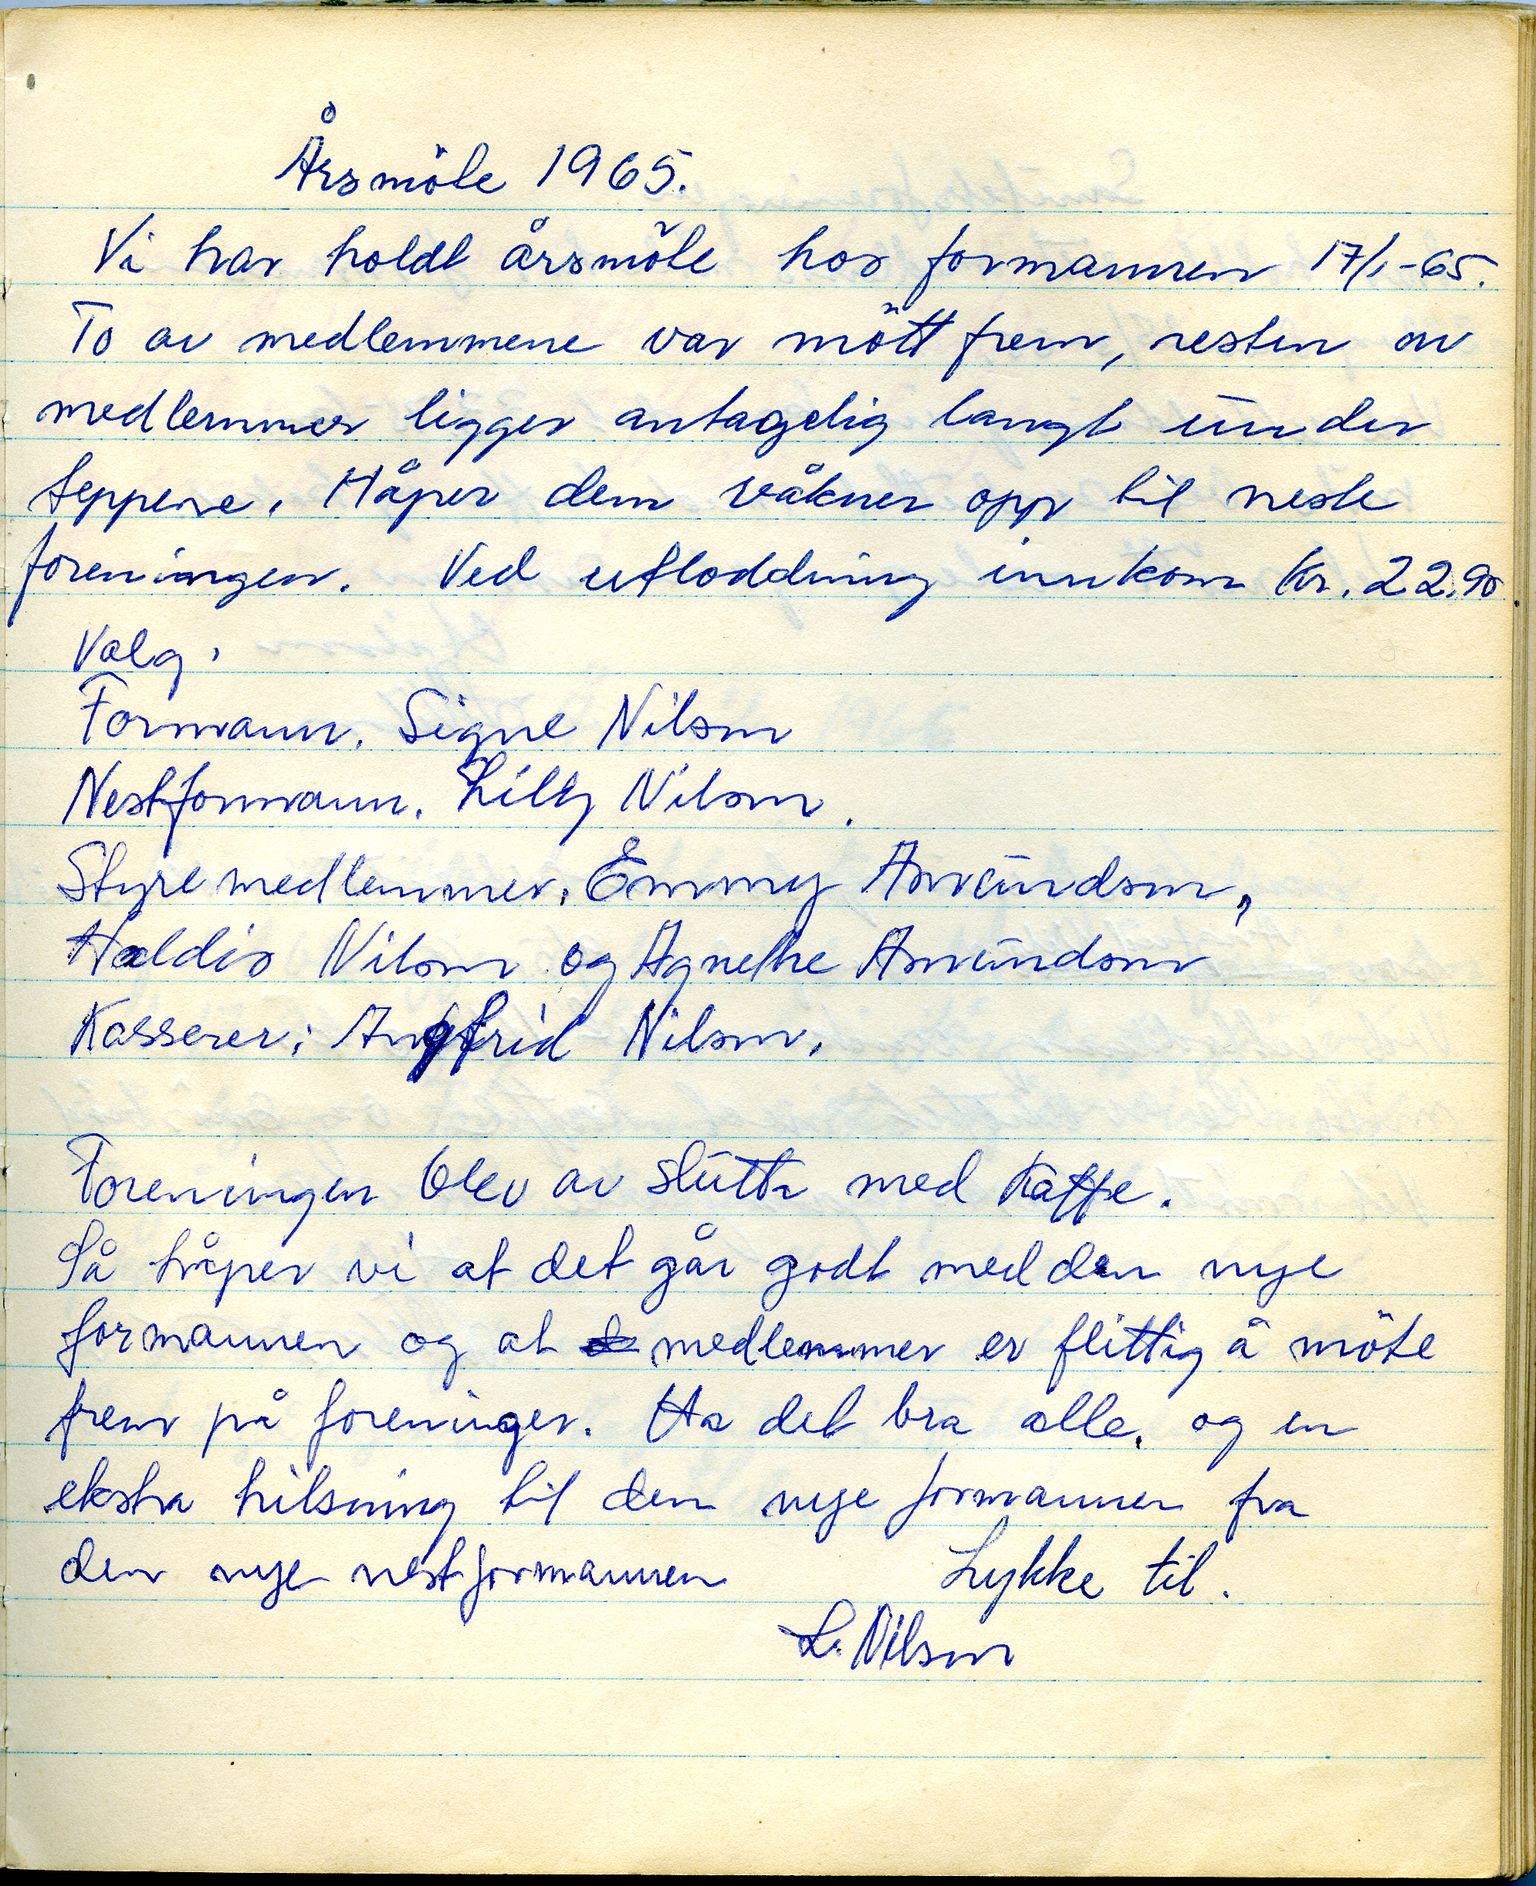 Årsmöte 1965.
Vi har holdt årsmöte hos formannen 17/1-65.
To av medlemmene var mött frem, resten av
medlemmer ligger antagelig langt under
teppene. Håper dem våkner opp til neste
foreningen. Ved utloddning innkom kr. 22.90
Valg.
Formann. Signe Nilsen
Nestformann. Lilly Nilsen.
Styremedlemmer. Emmy Amundsen,
Haldis Nilsen og Agnethe Amundsen
Kasserer: Angfrid Nilsen.
Foreningen blev av slutta med Kaffe.
Så håper vi at det går godt med den nye
formannen og at medlemmer er flittig å möte
frem på foreninger. Ha det bra alle. og en
ekstra hilsning til den nye formannen fra
den nye nestformannen Lykke til.
L. Nilsen